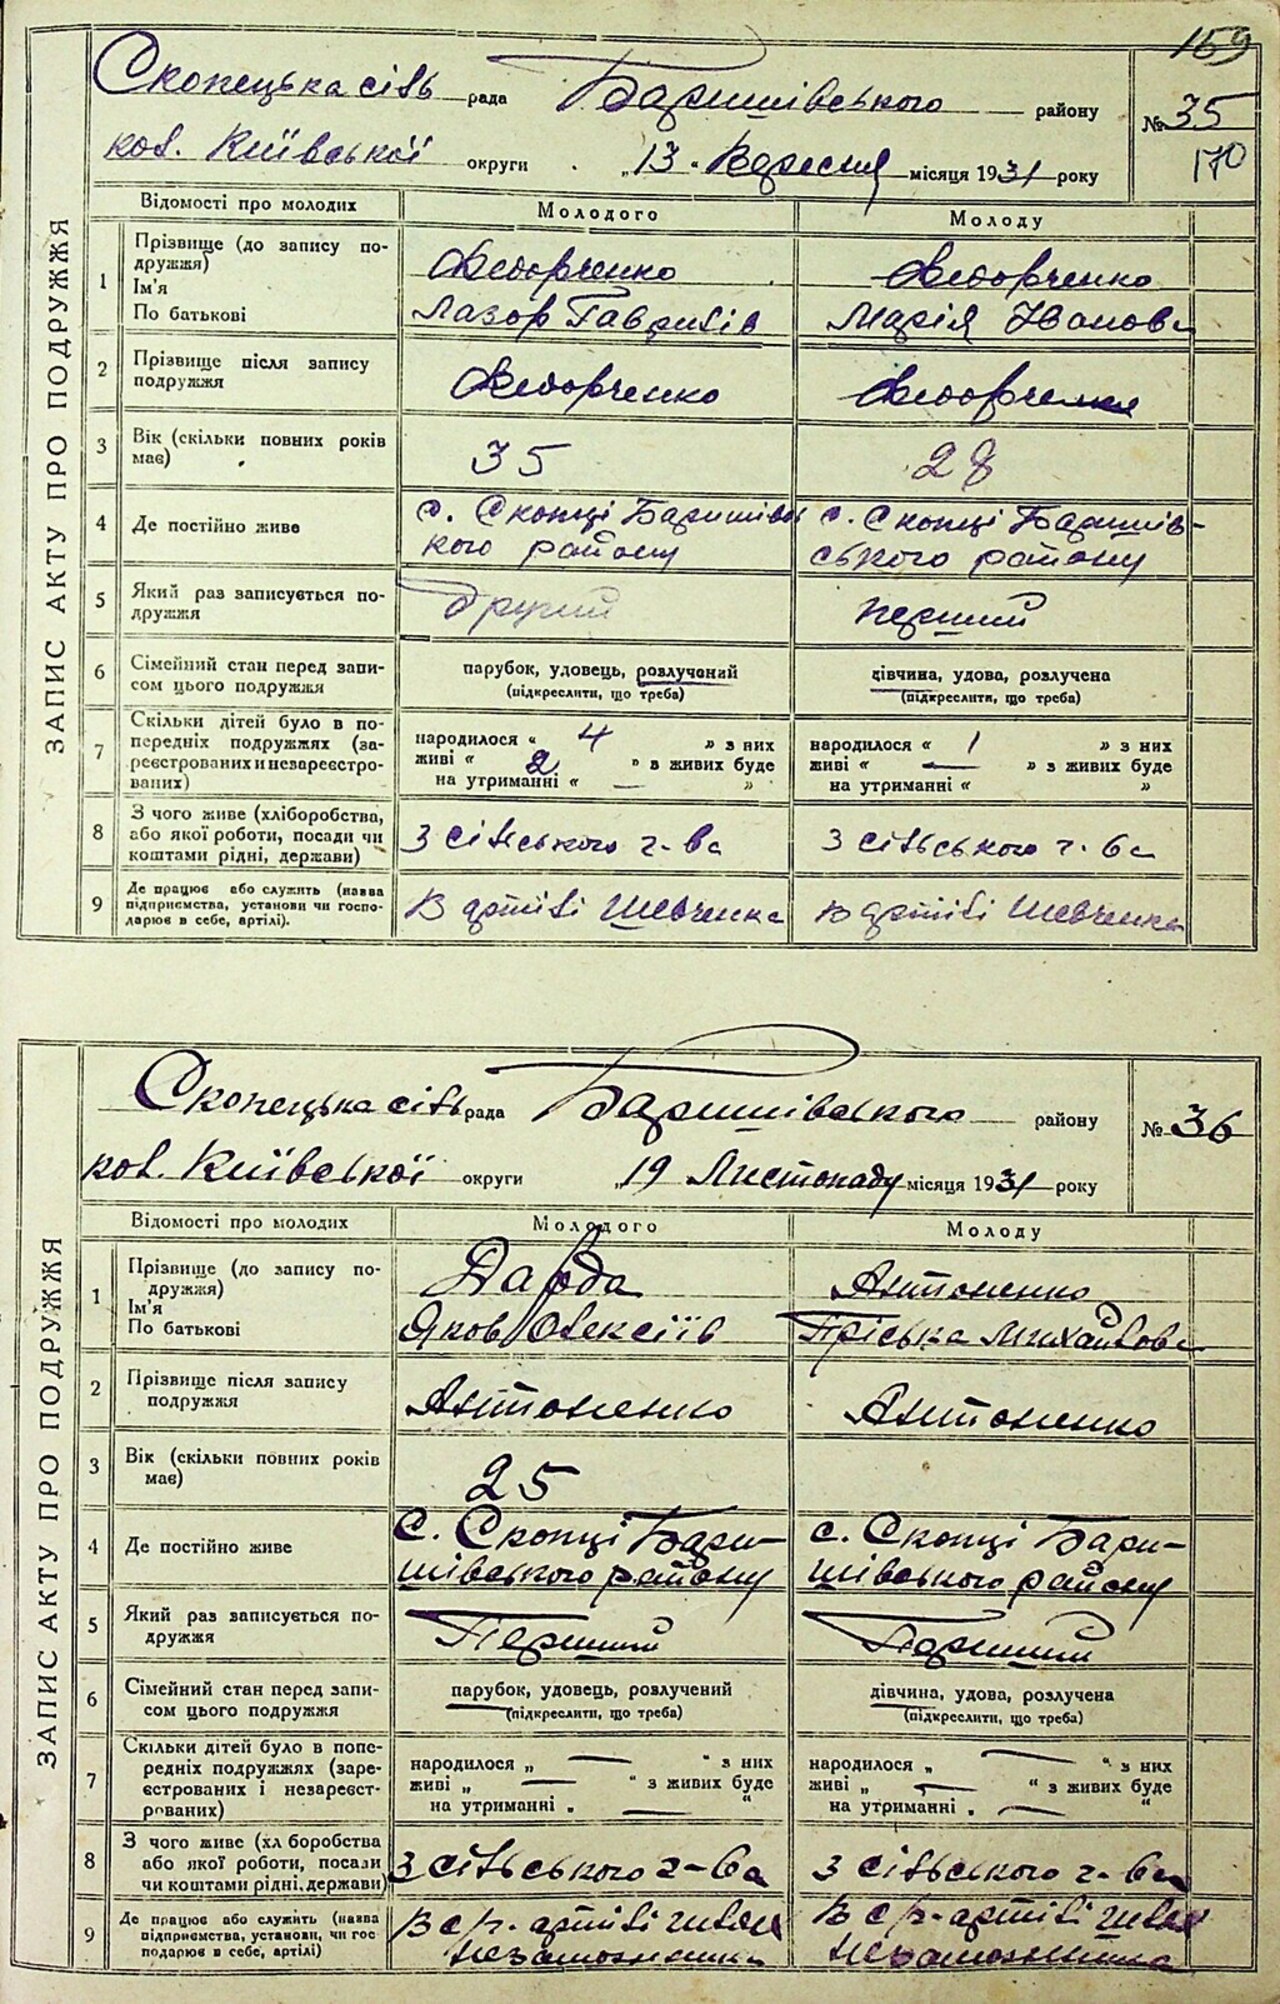 159
Скопецька сіль рада Баришівського району № 35
кол. Київської округи „13" Вересня місяця 1931 року 170
ЗАПИС АКТУ ПРО ПОДРУЖЖЯ
Відомості про молодих Молодого Молоду
1 Прізвище (до запису по-
дружжя) Федорченко Федорченко
Ім'я
По батькові Лазор Гаврилів Марія Іванова
2 Прізвище після запису
подружжя Федорченко Федорченко
3 Вік (скільки повних років
має) 35 28
4 Де постійно живе с. Скопці Баришівсь с. Скопці Баришів-
кого району ського району
5 Який раз записується по-
дружжя Другий перший
6 Сімейний стан перед запи- парубок, удовець, розлучений дівчина, удова, розлучена
сом цього подружжя (підкреслити, що треба) (підкреслити, що треба)
7 Скільки дітей було в по- народилося « 4 » з них народилося « 1 » з них
передніх подружжях (за- живі « 2 » в живих буде живі « — » з живих буде
реєстрованих и незареєстро- на утриманні « — » на утриманні « »
ваних)
8 З чого живе (хліборобства,
або якої роботи, посади чи З сільського г-ва З сільського г-ва
коштами рідні, держави)
9 Де працює або служить (назва
підприємства, установи чи госпо- В артілі Шевченка в артілі Шевченка
дарює в себе, артілі).
Скопецька сіль рада Баришівського району № 36
кол. Київської округи „19 Листопаду місяця 1931 року
ЗАПИС АКТУ ПРО ПОДРУЖЖЯ
Відомості про молодих Молодого Молоду
1 Прізвище (до запису по-
дружжя) Дарда Антоненко
Ім'я
По батькові Яков Олексіїв Пріська Михайлова
2 Прізвище після запису
подружжя Антоненко Антоненко
3 Вік (скільки повних років
має) 25
4 Де постійно живе С. Скопці Бари- с. Скопці Бари-
шівського району шівського району
5 Який раз записується по-
дружжя Перший Перший
6 Сімейний стан перед запи- парубок, удовець, розлучений дівчина, удова, розлучена
сом цього подружжя (підкреслити, що треба) (підкреслити, що треба)
7 Скільки дітей було в попе- народилося „ — “ з них народилося „ — “ з них
редніх подружжях (заре- живі „ — “ з живих буде живі „ — “ з живих буде
єстрованих і незареєст- на утриманні „ — “ на утриманні „ — “
рованих)
8 З чого живе (хл боробства
або якої роботи, посади З сільського г-ва З сільського г-ва
чи коштами рідні, держави)
9 Де працює або служить (назва В с/г. артілі В с/г-артілі
підприємства, установи, чи гос
подарює в себе, артілі) незаможника незаможника